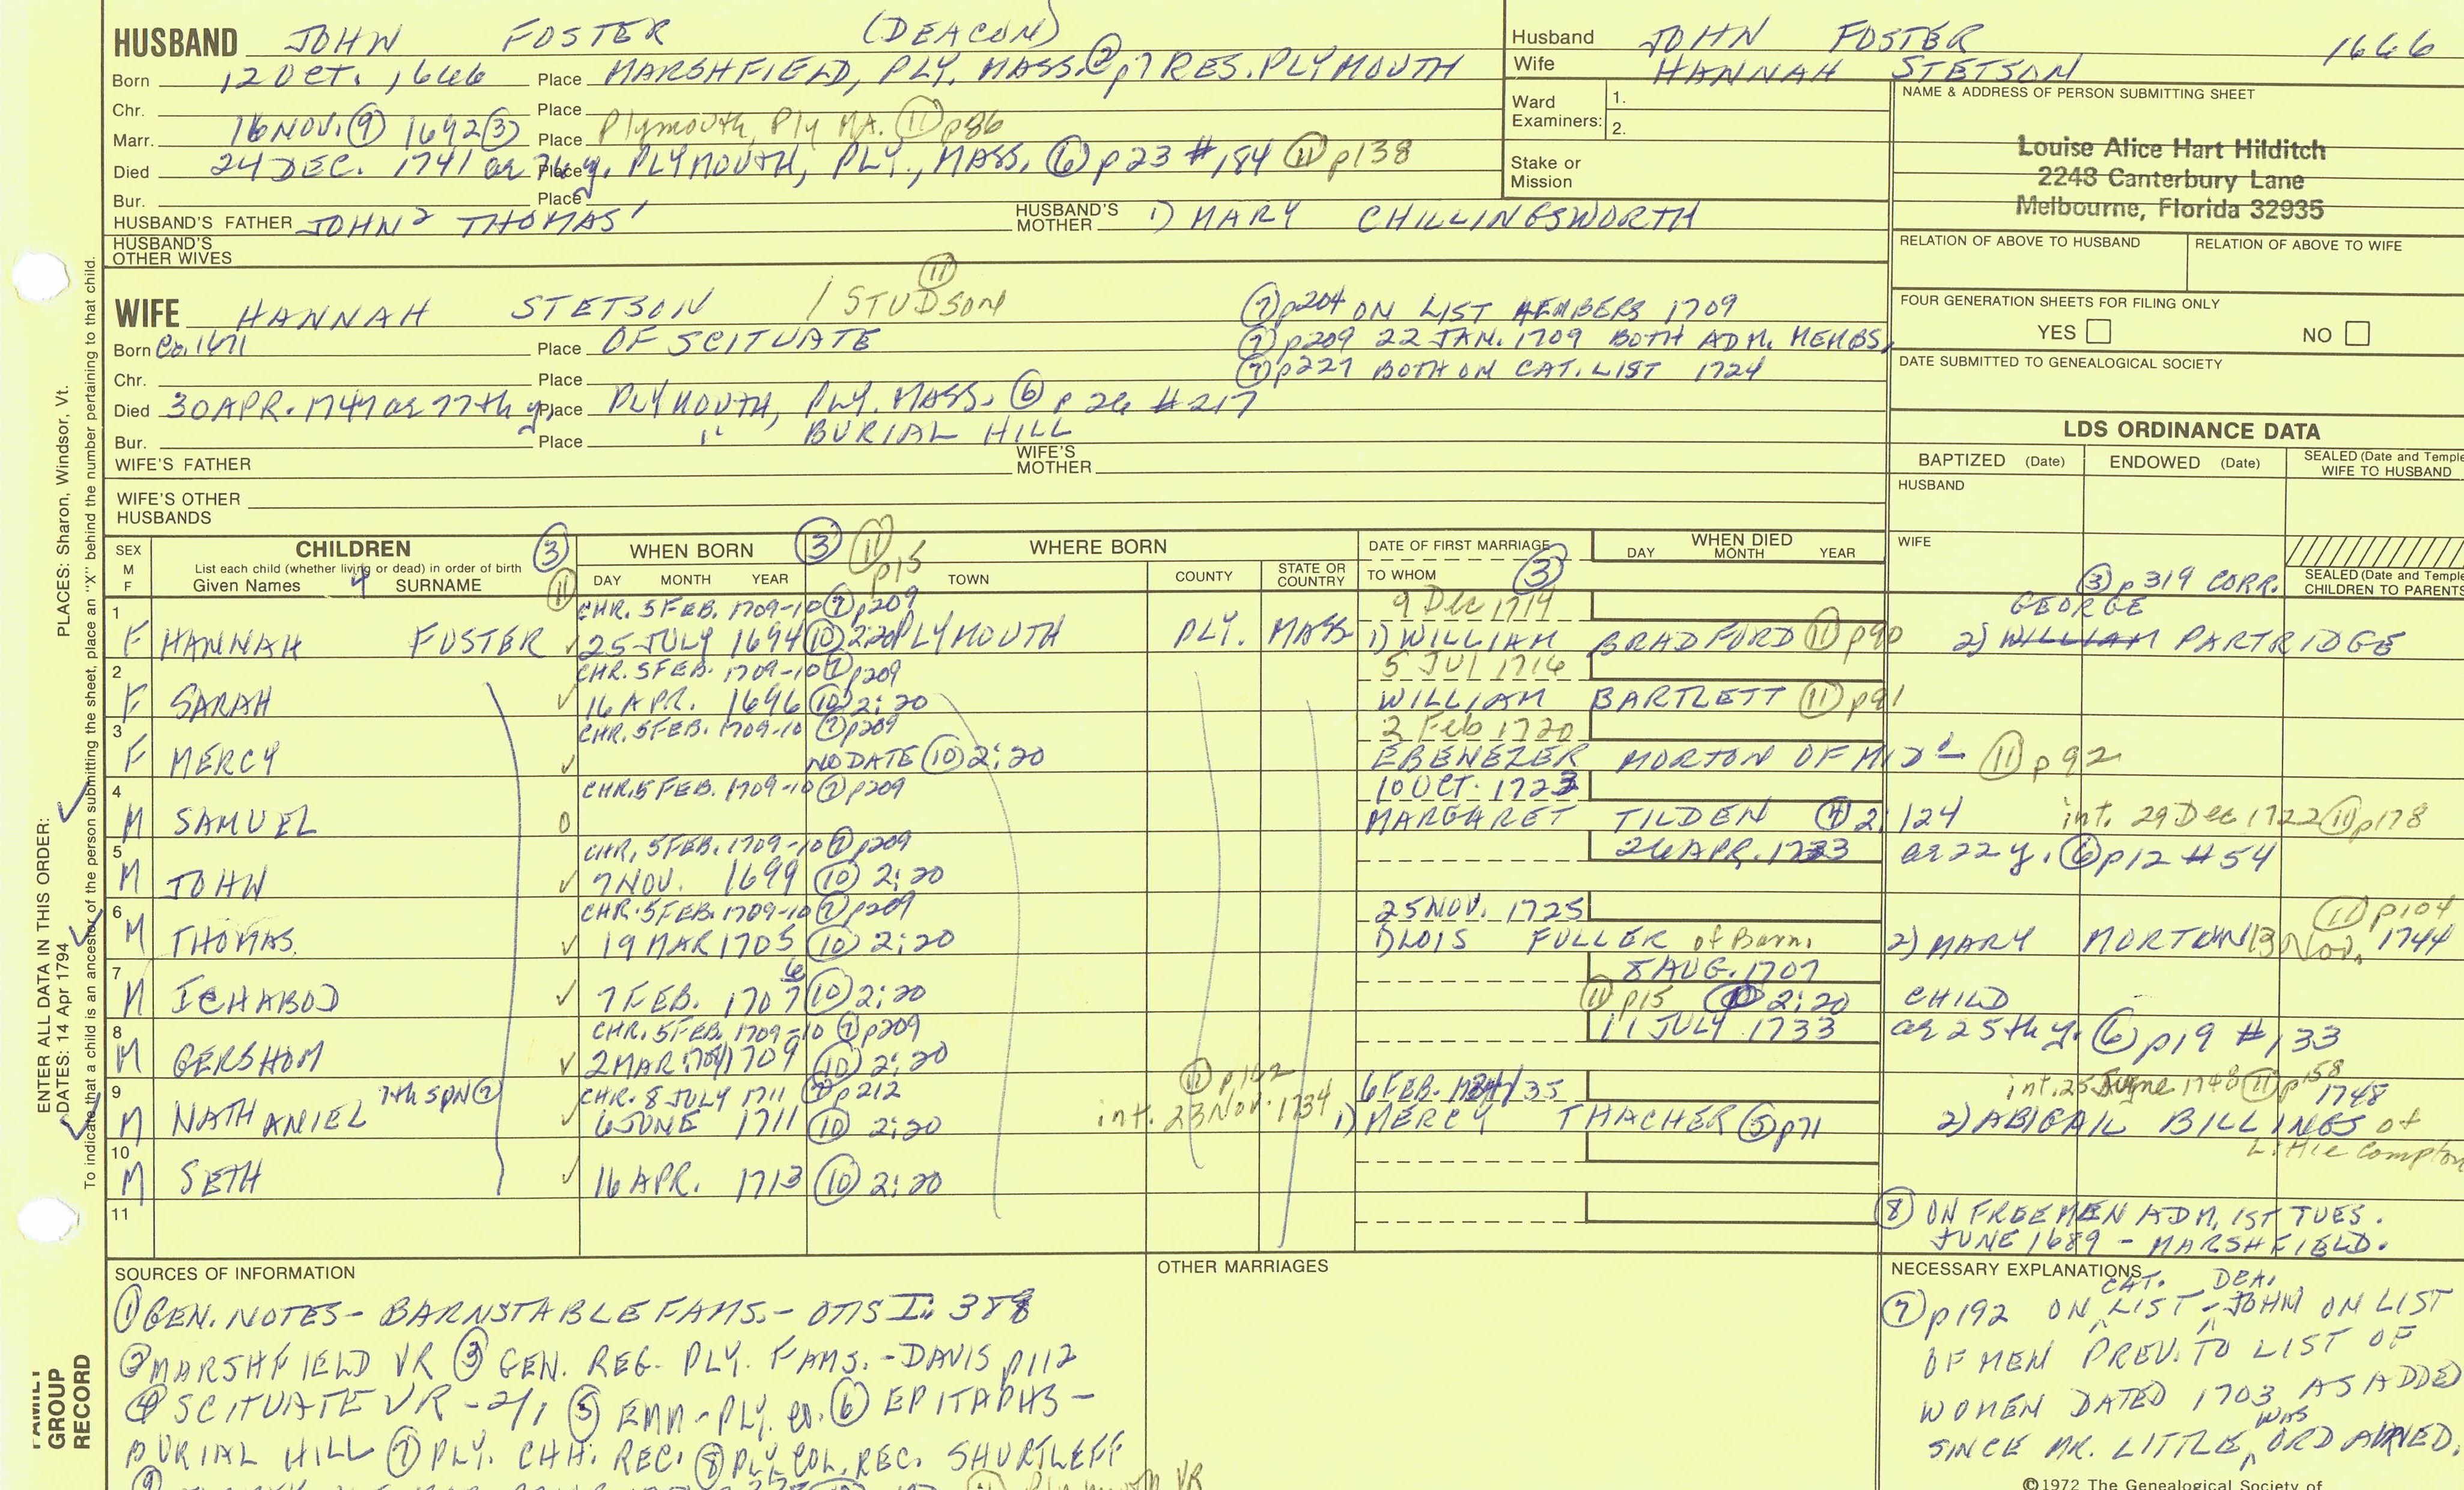 HUSBAND JOHN FOSTER (DEACON)
Born 12 OCT. 1666 Place MARSHFIELD, PLY. MASS. ② p7 RES. PLYMOUTH
Chr. Place
Marr. 16 NOV. ⑨ 1692 ③ Place Plymouth, Ply MA. ⑪ p86
Died 24 DEC. 1741 ae 76 y. Place PLYMOUTH, PLY., MASS. ⑥ p23 #184 ⑪ p138
Bur. Place
HUSBAND'S FATHER JOHN² THOMAS¹ HUSBAND'S MOTHER 1) MARY CHILLINGSWORTH
HUSBAND'S OTHER WIVES
Husband JOHN FOSTER 1666
Wife HANNAH STETSON
Ward Examiners: 1.
2.
Stake or Mission
NAME & ADDRESS OF PERSON SUBMITTING SHEET
Louise Alice Hart Hilditch
2248 Canterbury Lane
Melbourne, Florida 32935
RELATION OF ABOVE TO HUSBAND RELATION OF ABOVE TO WIFE
FOUR GENERATION SHEETS FOR FILING ONLY
YES NO
DATE SUBMITTED TO GENEALOGICAL SOCIETY
WIFE HANNAH STETSON / STUDSON ⑪
⑦ p204 ON LIST MEMBERS 1709
Born Ca. 1671 Place OF SCITUATE
⑦ p209 22 JAN. 1709 BOTH ADM. MEMBS.
Chr. Place
⑦ p227 BOTH ON CAT. LIST 1724
Died 30 APR. 1747 ae 77th y. Place PLYMOUTH, PLY. MASS. ⑥ p 26 #217
Bur. Place " BURIAL HILL
WIFE'S FATHER WIFE'S MOTHER
WIFE'S OTHER HUSBANDS
LDS ORDINANCE DATA
BAPTIZED (Date) ENDOWED (Date) SEALED (Date and Temple) WIFE TO HUSBAND
HUSBAND
WIFE
SEALED (Date and Temple) CHILDREN TO PARENTS
SEX M F CHILDREN ③ WHEN BORN ③ ⑪ p15 WHERE BORN DATE OF FIRST MARRIAGE WHEN DIED
List each child (whether living or dead) in order of birth
Given Names SURNAME ⑪ DAY MONTH YEAR TOWN COUNTY STATE OR COUNTRY TO WHOM ③ DAY MONTH YEAR
③ p 319 CORR.
1 CHR. 5 FEB. 1709-10 ⑦ p209 9 Dec 1714 GEORGE
F HANNAH FOSTER ✓ 25 JULY 1694 ⑩ 2:20 PLYMOUTH PLY. MASS 1) WILLIAM BRADFORD ⑪ p90 2) WILLIAM PARTRIDGE
2 CHR. 5 FEB. 1709-10 ⑦ p209 5 JUl 1716
F SARAH ✓ 16 APR. 1696 ⑩ 2:20 WILLIAM BARTLETT ⑪ p91
3 CHR. 5 FEB. 1709-10 ⑦ p209 2 Feb 1720
F MERCY ✓ NO DATE ⑩ 2:20 EBENEZER MORTON OF MID. ⑪ p92
4 CHR. 5 FEB. 1709-10 ⑦ p209 10 OCT. 1723
M SAMUEL 0 MARGARET TILDEN ④ 2:124 int. 29 Dec 1722 ⑪ p178
5 CHR. 5 FEB. 1709-10 ⑦ p209 26 APR. 1723 ae 22 y. ⑥ p12 #54
M JOHN ✓ 7 NOV. 1699 ⑩ 2:20
6 CHR. 5 FEB. 1709-10 ⑦ p209 25 NOV. 1725 ⑪ p104
M THOMAS ✓ 19 MAR 1705 ⑩ 2:20 1) LOIS FULLER of Barn. 2) MARY MORTON 13 Nov. 1744
7 6 8 AUG. 1707
M ICHABOD ✓ 7 FEB. 1707 ⑩ 2:20 ⑪ p15 ⑩ 2:20 CHILD
8 CHR. 5 FEB. 1709-10 ⑦ p209 11 JULY 1733 ae 25th y. ⑥ p19 #133
M GERSHOM ✓ 2 MAR 1709 ⑩ 2:20
9 7th SON ⑦ CHR. 8 JULY 1711 ⑦ p212 6 FEB. 1734/35 int. 25 June 1748 ⑪ p158 1748
M NATHANIEL ✓ 6 JUNE 1711 ⑩ 2:20 int. 23 Nov. 1734 1) MERCY THACHER ⑤ p71 2) ABIGAIL BILLINGS of Little Compton
10
M SETH ✓ 16 APR. 1713 ⑩ 2:20
11
⑧ ON FREEMEN ADM. 1ST TUES.
JUNE 1689 - MARSHFIELD.
SOURCES OF INFORMATION
① GEN. NOTES - BARNSTABLE FAMS. - OTIS I: 388
② MARSHFIELD VR ③ GEN. REG. PLY. FAMS. - DAVIS p112
④ SCITUATE VR - 2/1 ⑤ EMM - PLY. CO. ⑥ EPITAPHS -
BURIAL HILL ⑦ PLY. CHH. REC. ⑧ PLY COL. REC. SHURTLEFF
⑨ Plymouth VR
OTHER MARRIAGES
NECESSARY EXPLANATIONS
CAT. DEA.
⑦ p192 ON LIST - JOHN ON LIST
OF MEN PREV. TO LIST OF
WOMEN DATED 1703 AS ADDED
SINCE MR. LITTLE WAS ORDAINED.
©1972 The Genealogical Society of
PLACES: Sharon, Windsor, Vt.
ENTER ALL DATA IN THIS ORDER:
DATES: 14 Apr 1794
To indicate that a child is an ancestor of the person submitting the sheet, place an "X" behind the number pertaining to that child.
FAMILY GROUP RECORD